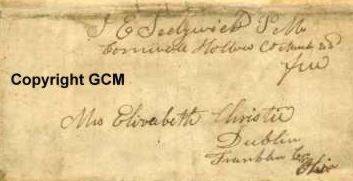 J E Sedgwick P. M.
Cornwall Hollow Ct
Free
Copyright GCM
Mrs Elizabeth Christie
Dublin
Franklin Co.
Ohio